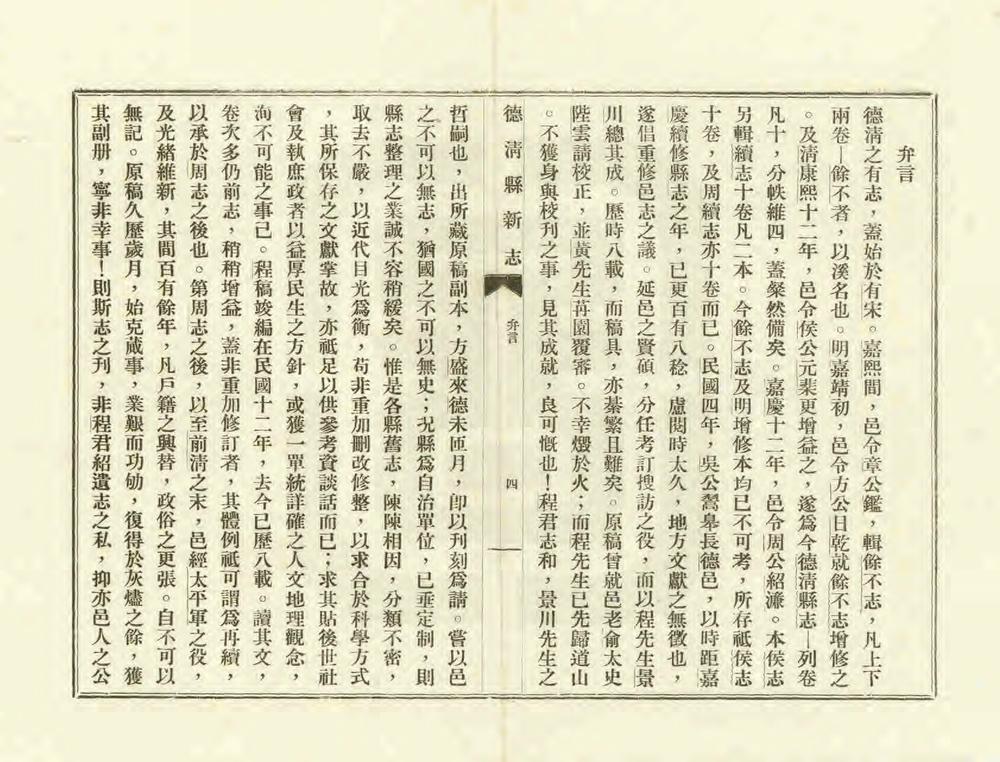 弁言
德清之有志，蓋始於有宋。嘉熙間，邑令章公鑑，輯餘不志，凡上下
兩卷—餘不者，以溪名也。明嘉靖初，邑令方公日乾就餘不志增修之
。及清康熙十二年，邑令侯公元棐更增益之，遂爲今德清縣志—列卷
凡十，分帙維四，蓋粲然備矣。嘉慶十二年，邑令周公紹濂。本侯志
另輯續志十卷凡二本。今餘不志及明增修本均已不可考，所存祗侯志
十卷，及周續志亦十卷而已。民國四年，吳公嚣皋長德邑，以時距嘉
慶續修縣志之年，已更百有八稔，慮閱時太久，地方文獻之無徵也，
遂倡重修邑志之議。延邑之賢碩，分任考訂搜訪之役，而以程先生景
川總其成。歷時八載，而稿具，亦綦繁且難矣。原稿曾就邑老俞太史
陛雲請校正，並黃先生苒園覆審。不幸燬於火；而程先生已先歸道山
。不獲身與校刊之事，見其成就，良可慨也！程君志和，景川先生之
德清縣新志
弁言
四
哲嗣也，出所藏原稿副本，方盛來德未匝月，卽以刊刻爲請。嘗以邑
之不可以無志，猶國之不可以無史；況縣爲自治單位，已垂定制，則
縣志整理之業誠不容稍緩矣。惟是各縣舊志，陳陳相因，分類不密，
取去不嚴，以近代目光爲衡，苟非重加刪改修整，以求合於科學方式
，其所保存之文獻掌故，亦祗足以供參考資談話而已；求其貼後世社
會及執庶政者以益厚民生之方針，或獲一單統詳確之人文地理觀念，
洵不可能之事已。程稿竣編在民國十二年，去今已歷八載。讀其文，
卷次多仍前志，稍稍增益，蓋非重加修訂者，其體例祗可謂爲再續，
以承於周志之後也。第周志之後，以至前清之末，邑經太平軍之役，
及光緒維新，其間百有餘年，凡戶籍之興替，政俗之更張。自不可以
無記。原稿久歷歲月，始克蕆事，業艱而功劬，復得於灰燼之餘，獲
其副册，寧非幸事！則斯志之刊，非程君紹遺志之私，抑亦邑人之公